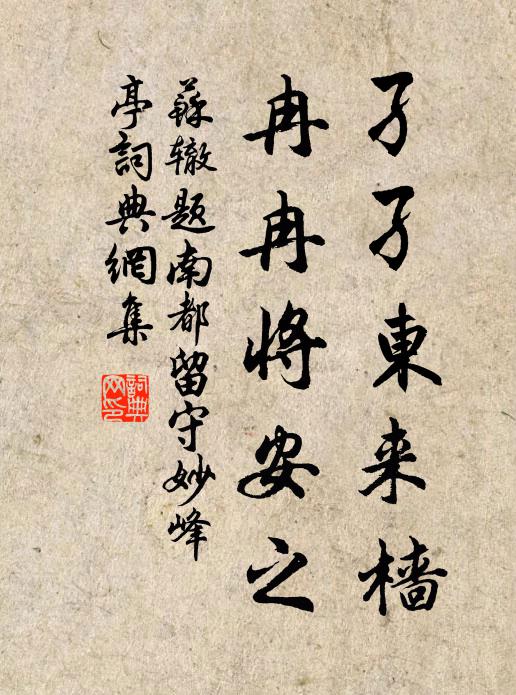 孑孑東来檣
冉冉將安之
蘇辙题南都留守妙峰
亭詞典網集
詞典网印